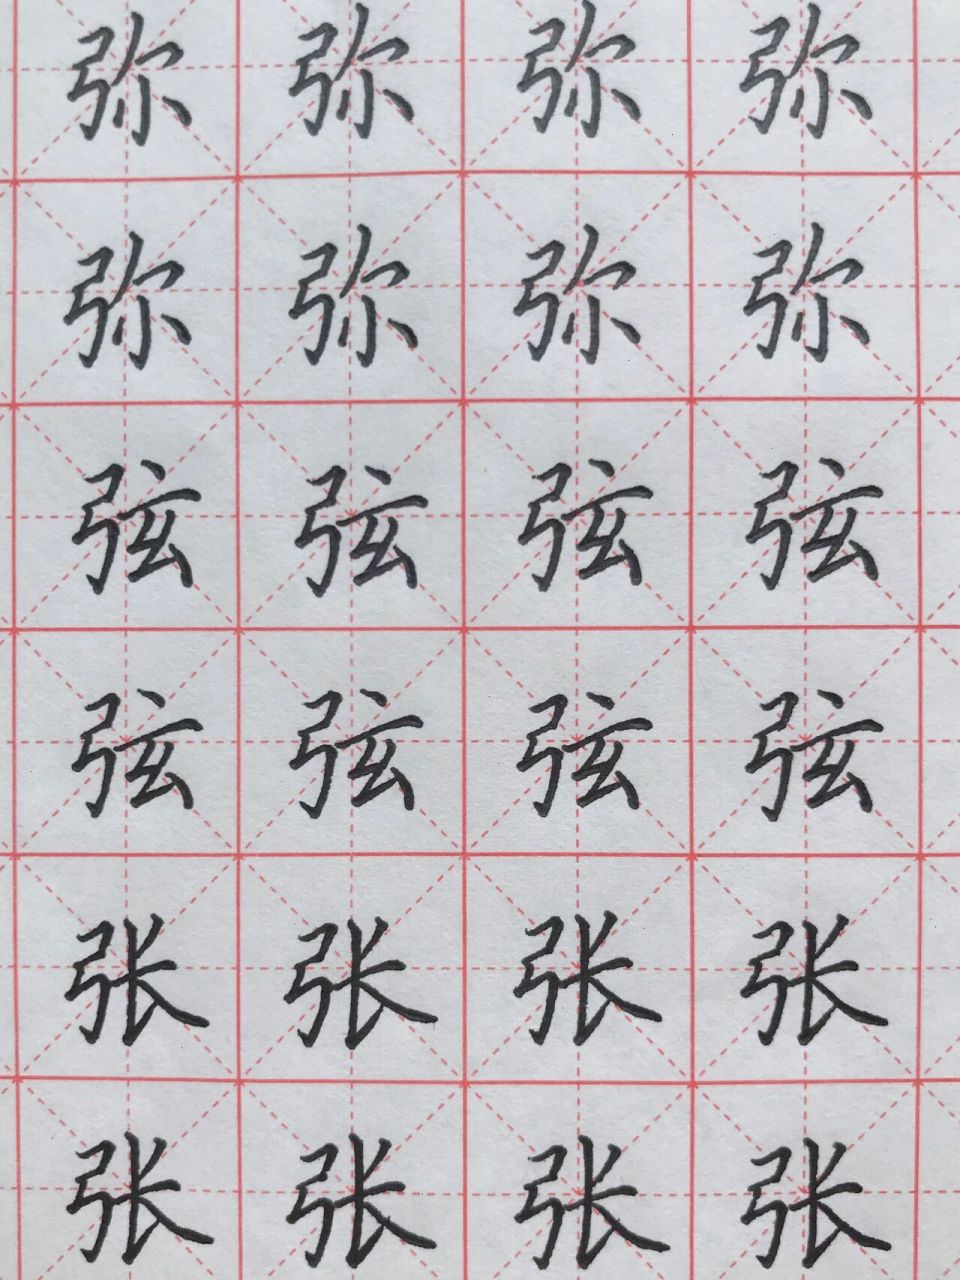 弥弥弥弥
弥弥弥弥
弦弦弦弦
弦弦弦弦
张张张张
张张张张